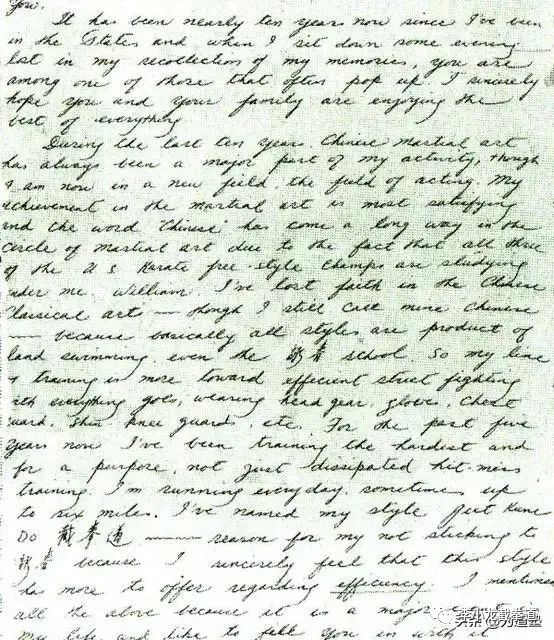 you.
It has been nearly ten years now since I've been
in the States and when I sit down some evening
lost in my recollection of my memories, you are
among one of those that often pop up. I sincerely
hope you and your family are enjoying the
best of everything
During the last ten years Chinese martial art
has always been a major part of my activity, though
I am now in a new field, the field of acting. My
achievement in the martial art is most satisfying
and the word "Chinese" has come a long way in the
circle of martial art due to the fact that all three
of the U.S. Karate free-style champs are studying
under me. William. I've lost faith in the Chinese
Classical art — though I still call mine Chinese
— because basically all styles are product of
land swimming, even the 詠春 school. So my line
of training is more toward efficient street fighting
with everything goes, wearing head gear, gloves, chest
guard, shin knee guards, etc. For the past five
years now I've been training the hardest and
for a purpose, not just dissipated hit-miss
training. I'm running everyday, sometime up
to six miles. I've named my style Jeet Kune
Do 截拳道 — reason for my not sticking to
詠春 because I sincerely feel that this style
has more to offer regarding efficiency. I mentioned
all the above because it is a major
my life and like to fill you in with
李小龙截拳道
头条